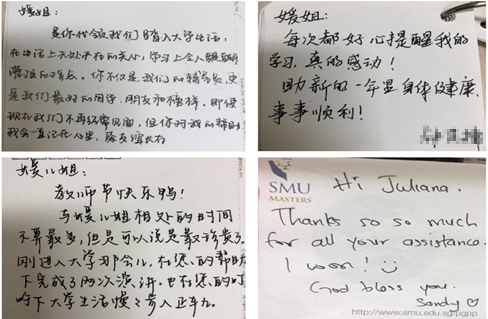 媛姐:
是你代领我们踏入大学生活,
在生活上无处不在的关心,学习上全人
你不仅是我们的辅导员,更
是我们最好的同学、朋友和榜样。即使
现在我们不再经常见面,但你对我的帮助
我会一直记在心里,
媛姐:
每次都好心提醒我的
学习,真的感动!
新的一年里身体健康、
事事顺利!
媛儿姐:
教师节快乐鸭!
与媛儿姐相处的时间
不算最多,但是可以说是最珍贵了。
刚进入大学那会儿,在您的帮助
下完成了两次演讲。也在您的叮
咛下大学生活慢慢步入正轨。
SMU
MASTERS
Hi Juliana.
Thanks so so much
for all your assistance.
I won!
God bless you.
Sandy
http://www.smu.edu.sg/pgpp